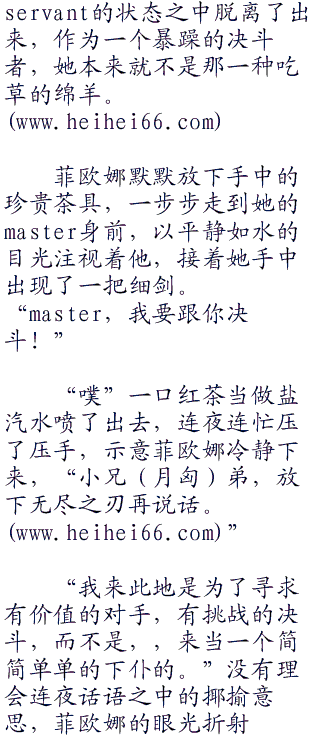 servant的状态之中脱离了出
来，作为一个暴躁的决斗
者，她本来就不是那一种吃
草的绵羊。
(www.heihei66.com)
菲欧娜默默放下手中的
珍贵茶具，一步步走到她的
master身前，以平静如水的
目光注视着他，接着她手中
出现了一把细剑。
“master，我要跟你决
斗！”
“噗”一口红茶当做盐
汽水喷了出去，连夜连忙压
了压手，示意菲欧娜冷静下
来，“小兄（月匈）弟，放
下无尽之刃再说话。
(www.heihei66.com)”
“我来此地是为了寻求
有价值的对手，有挑战的决
斗，而不是，，来当一个简
简单单的下仆的。”没有理
会连夜话语之中的揶揄意
思，菲欧娜的眼光折射